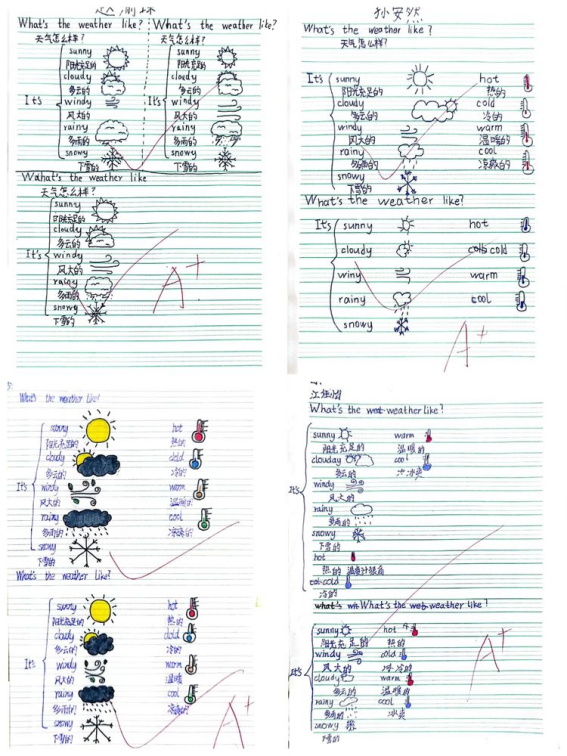 What's the weather like?
天气怎么样?
It's
sunny
阳光充足的
cloudy
多云的
windy
风大的
rainy
多雨的
snowy
下雪的
What's the weather like?
天气怎么样?
It's
sunny
阳光充足的
cloudy
多云的
windy
风大的
rainy
多雨的
snowy
下雪的
What's the weather like
天气怎么样?
It's
sunny
阳光充足的
cloudy
多云的
windy
风大的
rainy
多雨的
snowy
下雪的
A+
孙安然
What's the weather like?
天气怎么样?
It's
sunny hot
阳光充足的 热的
cloudy cold
多云的 冷的
windy warm
风大的 温暖的
rainy cool
多雨的
snowy
下雪的
What's the weather like?
It's
sunny hot
cloudy cold
winy warm
rainy cool
snowy
A+
What's the weather like?
It's
sunny hot
阳光充足的 热的
cloudy cold
多云的 冷的
windy warm
风大的 温暖的
rainy cool
多雨的 凉爽的
snowy
下雪的
What's the weather like?
It's
sunny hot
阳光充足的 热的
cloudy cold
多云的 冷的
windy warm
风大的 温暖
rainy cool
多雨的 凉爽的
snowy
下雪的
A+
What's the weather like?
It's
sunny warm
阳光充足的 温暖的
clouday cool
多云的
windy
风大的
rainy
多雨的
snowy
下雪的
hot
热的
cold
冷的
What's the weather like?
It's
sunny hot
阳光充足的 热的
windy cold
风大的 冷的
cloudy warm
多云的 温暖的
rainy cool
多雨的
snowy
下雪的
A+